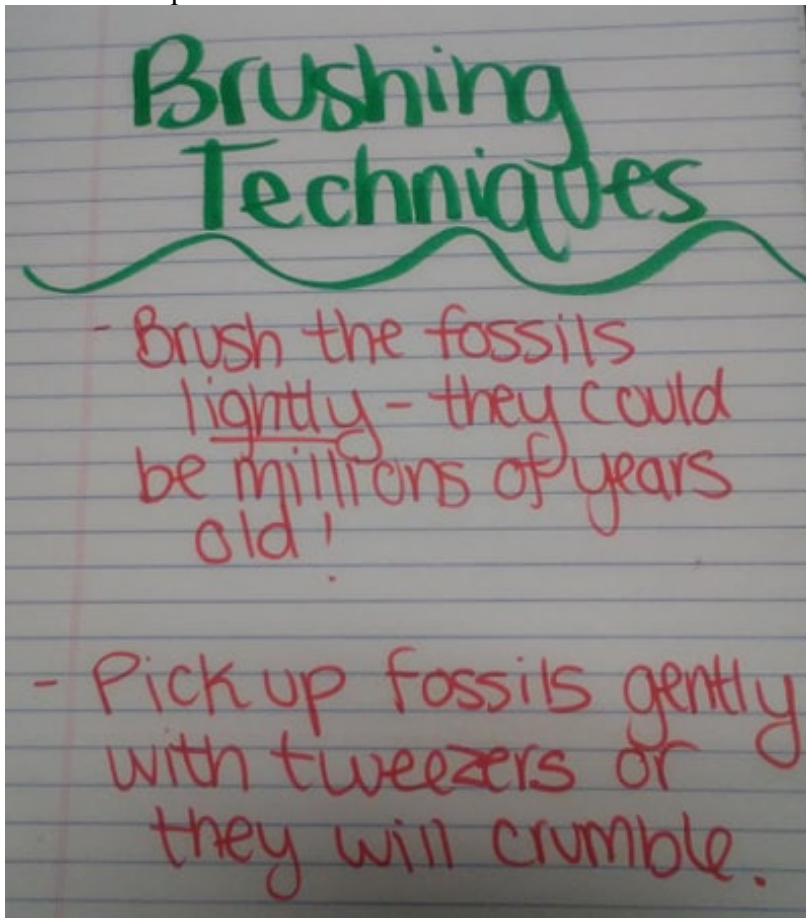 Brushing
Techniques
- Brush the fossils
lightly - they could
be millions of years
old!
- Pick up fossils gently
with tweezers or
they will crumble.